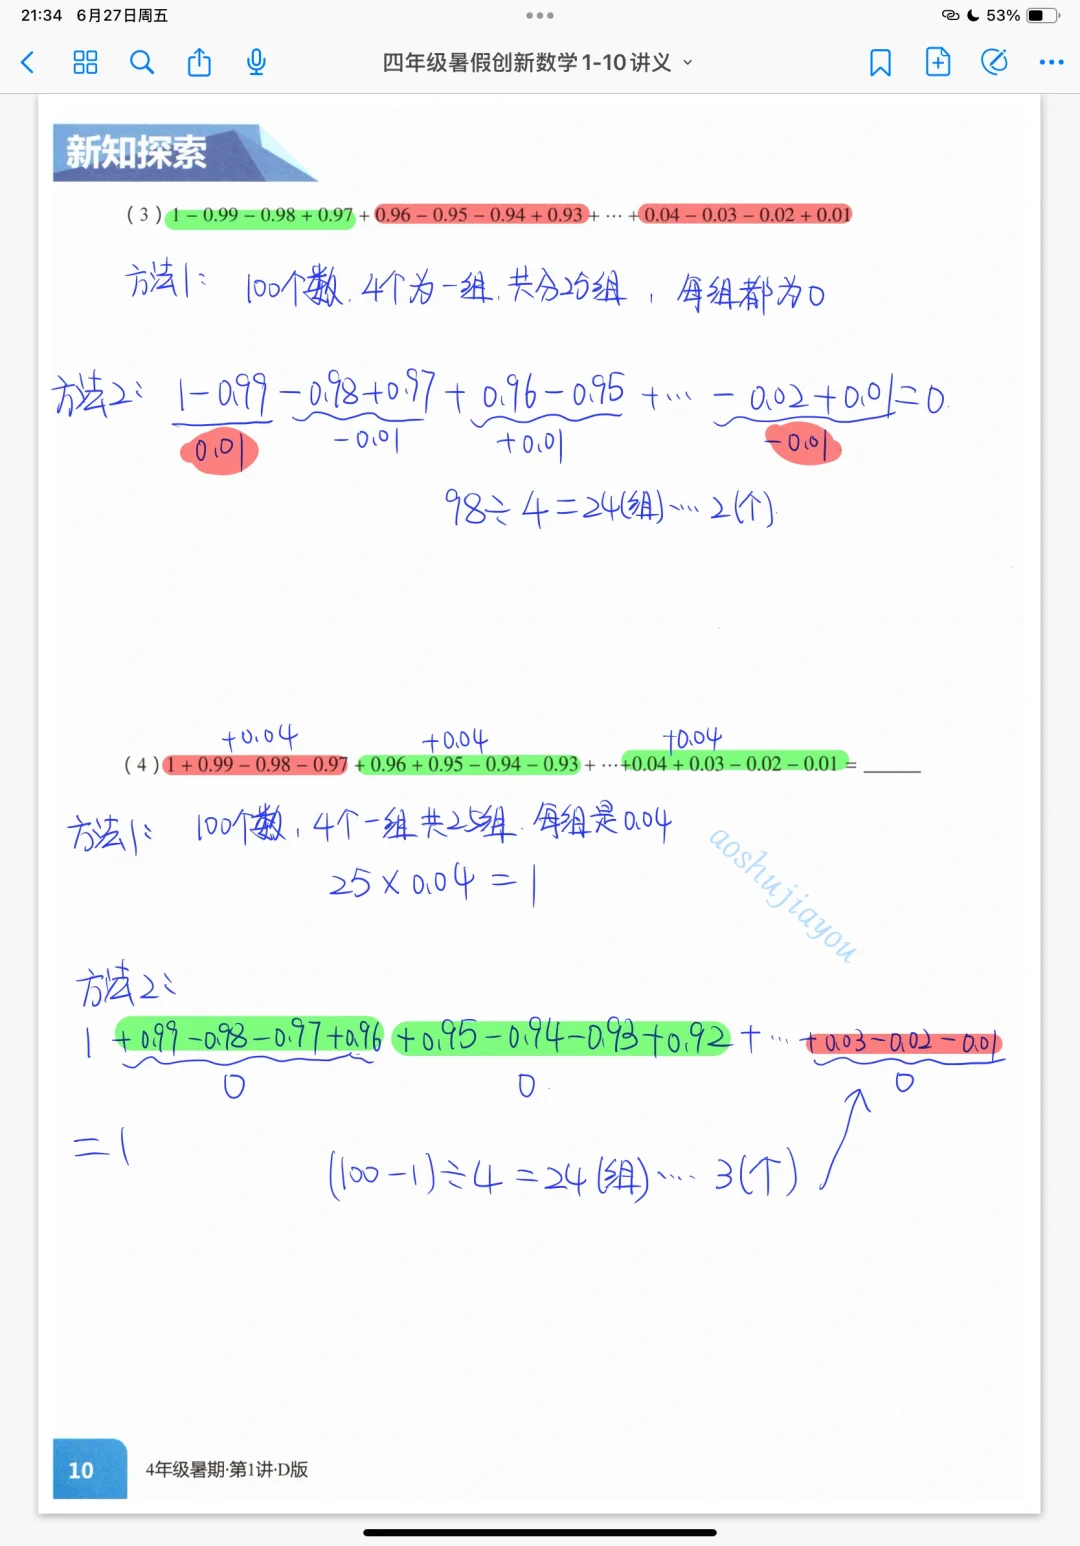 21:34 6月27日周五
53%
四年级暑假创新数学1-10讲义
新知探索
(3) 1－0.99－0.98＋0.97＋0.96－0.95－0.94＋0.93＋…＋0.04－0.03－0.02＋0.01
方法1: 100个数, 4个为一组, 共分25组, 每组都为0
方法2: 1－0.99－0.98＋0.97＋0.96－0.95＋…－0.02＋0.01＝0
0.01 －0.01 ＋0.01 －0.01
98÷4＝24(组)…2(个)
＋0.04 ＋0.04 ＋0.04
(4) 1＋0.99－0.98－0.97＋0.96＋0.95－0.94－0.93＋…＋0.04＋0.03－0.02－0.01＝____
方法1: 100个数, 4个一组共25组, 每组是0.04
25×0.04＝1
aoshujiayou
方法2:
1＋0.99－0.98－0.97＋0.96＋0.95－0.94－0.93＋0.92＋…＋0.03－0.02－0.01
0 0 0
＝1
(100－1)÷4＝24(组)…3(个)
10
4年级暑期·第1讲·D版